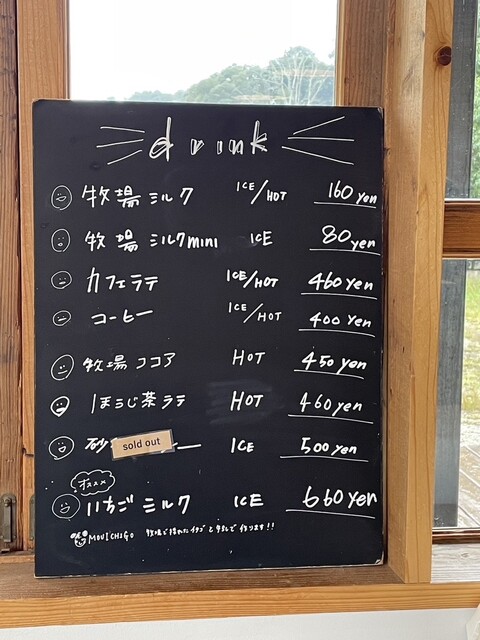 drink
牧場ミルク ICE/HOT 160yen
牧場ミルクmini ICE 80yen
カフェラテ ICE/HOT 460yen
コーヒー ICE/HOT 400yen
牧場ココア HOT 450yen
ほうじ茶ラテ HOT 460yen
砂 sold out ー ICE 500yen
オススメ
いちごミルク ICE 660yen
MOUICHIGO 牧場で採れたイチゴと牛乳で作ります!!